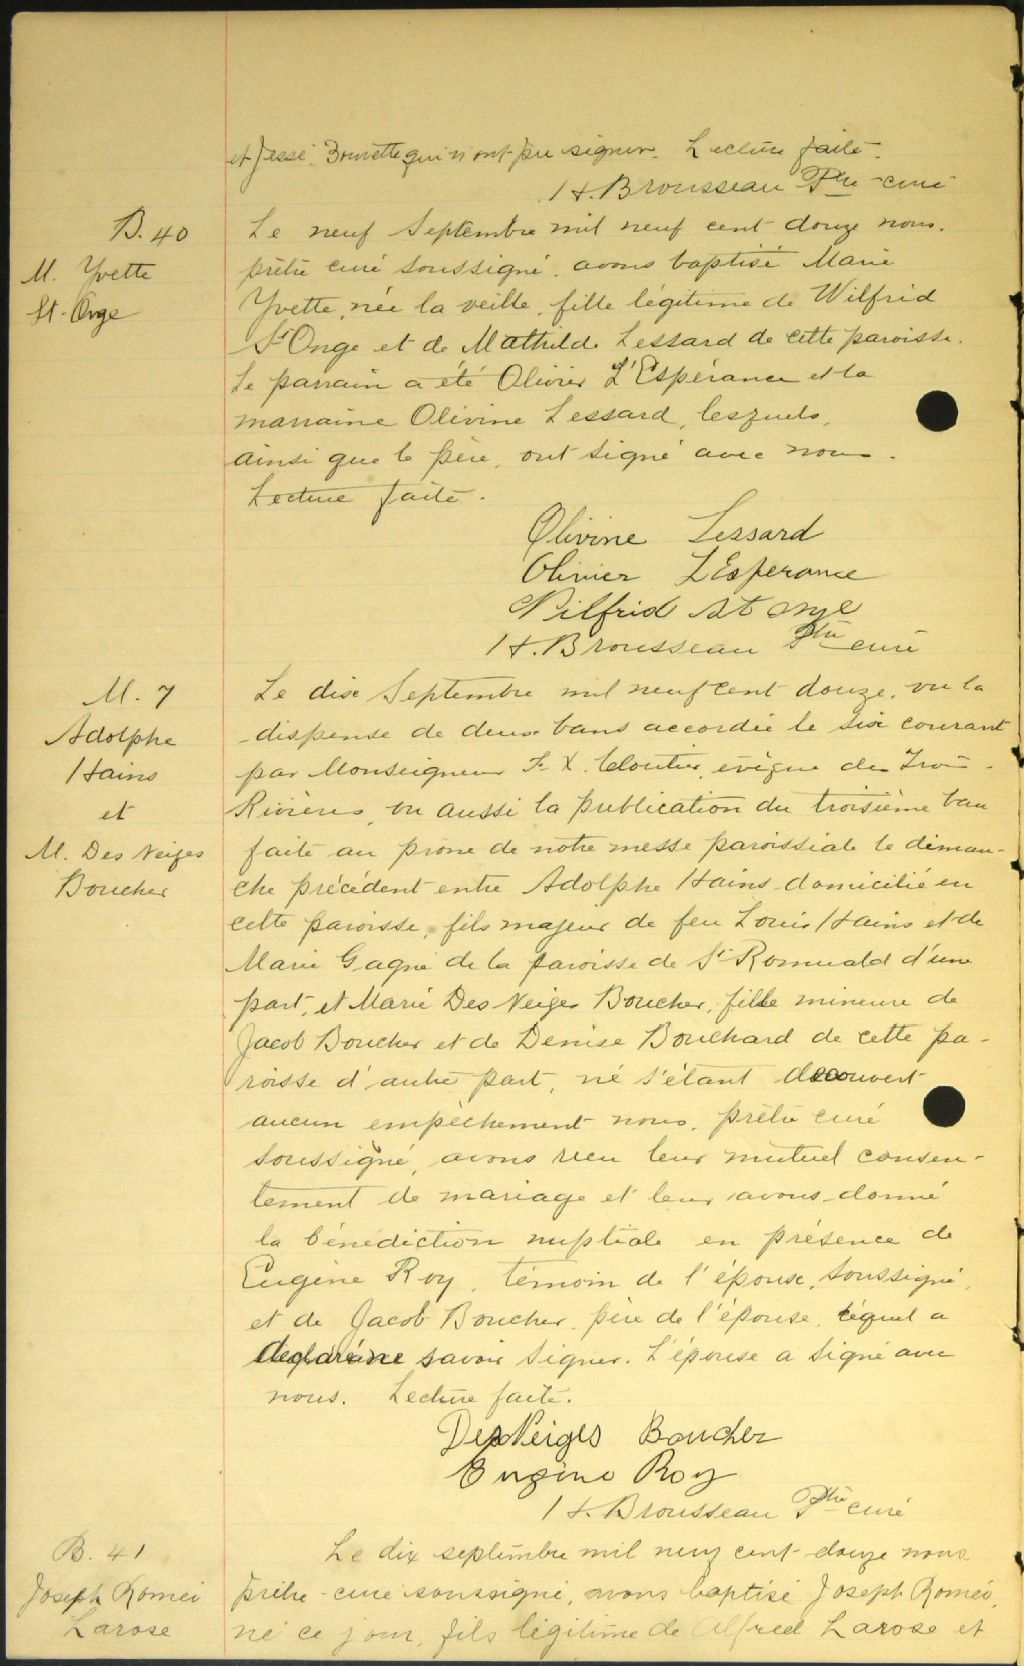 et Jessé Bourette qui n'ont pu signer. Lecture faite.
H. Brousseau Ptre-curé
B. 40
M. Yvette
St-Onge
Le neuf Septembre mil neuf cent douze nous,
prêtre curé soussigné, avons baptisé Marie
Yvette, née la veille, fille légitime de Wilfrid
St Onge et de Mathilde Lessard de cette paroisse.
Le parrain a été Olivier L'Espérance et la
marraine Olivine Lessard, lesquels,
ainsi que le père, ont signé avec nous.
Lecture faite.
Olivine Lessard
Olivier LEsperance
Wilfrid St onge
H. Brousseau Ptre curé
M. 7
Adolphe
Hains
et
M. Des Neiges
Boucher
Le dix Septembre mil neuf cent douze, vu la
dispense de deux bans accordée le six courant
par Monseigneur F. X. Cloutier, évêque des Trois-
Rivières, vu aussi la publication du troisième ban
faite au prône de notre messe paroissiale le diman-
che précédent entre Adolphe Hains domicilié en
cette paroisse, fils majeur de feu Louis Hains et de
Marie Gagné de la paroisse de St Romuald d'une
part, et Marie Des Neiges Boucher, fille mineure de
Jacob Boucher et de Denise Bouchard de cette pa-
roisse d'autre part, ne s'étant decouvert
aucun empêchement nous, prêtre curé
soussigné, avons reçu leur mutuel consen-
tement de mariage et leur avons donné
la bénédiction nuptiale en présence de
Eugène Roy, témoin de l'épouse, soussigné,
et de Jacob Boucher, père de l'épouse, lequel a
declaré ne savoir signer. L'épouse a signé avec
nous. Lecture faite.
DesNeiges Boucher
Eugène Roy
H. Brousseau Ptre curé
B. 41
Joseph Roméo
Larose
Le dix septembre mil neuf cent-douze nous
prêtre-curé soussigné, avons baptisé Joseph Roméo,
né ce jour, fils légitime de Alfred Larose et